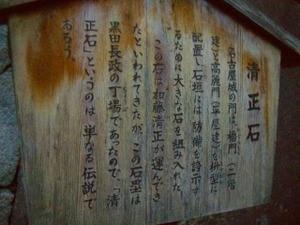 清正石
名古屋城の門は、楼門(二階
建)と高麗門(平屋建)を枡型に
配置し、石垣には防備を誇示す
るために大きな石を組み入れた。
この石は加藤清正が運んでき
たといわれてきたが、この石塁は
黒田長政の丁場であったので、「清
正石」というのは、単なる伝説で
あろう。